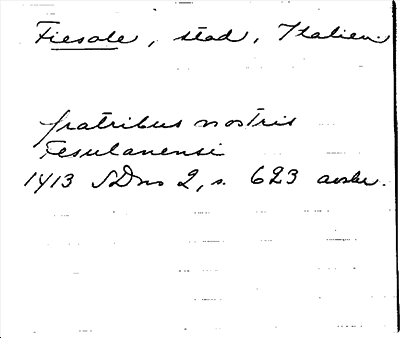 Fiesole, stad, Italien.
fratribus nostris
Fesulanensi
1413 SDns 2, s. 623 avskr.